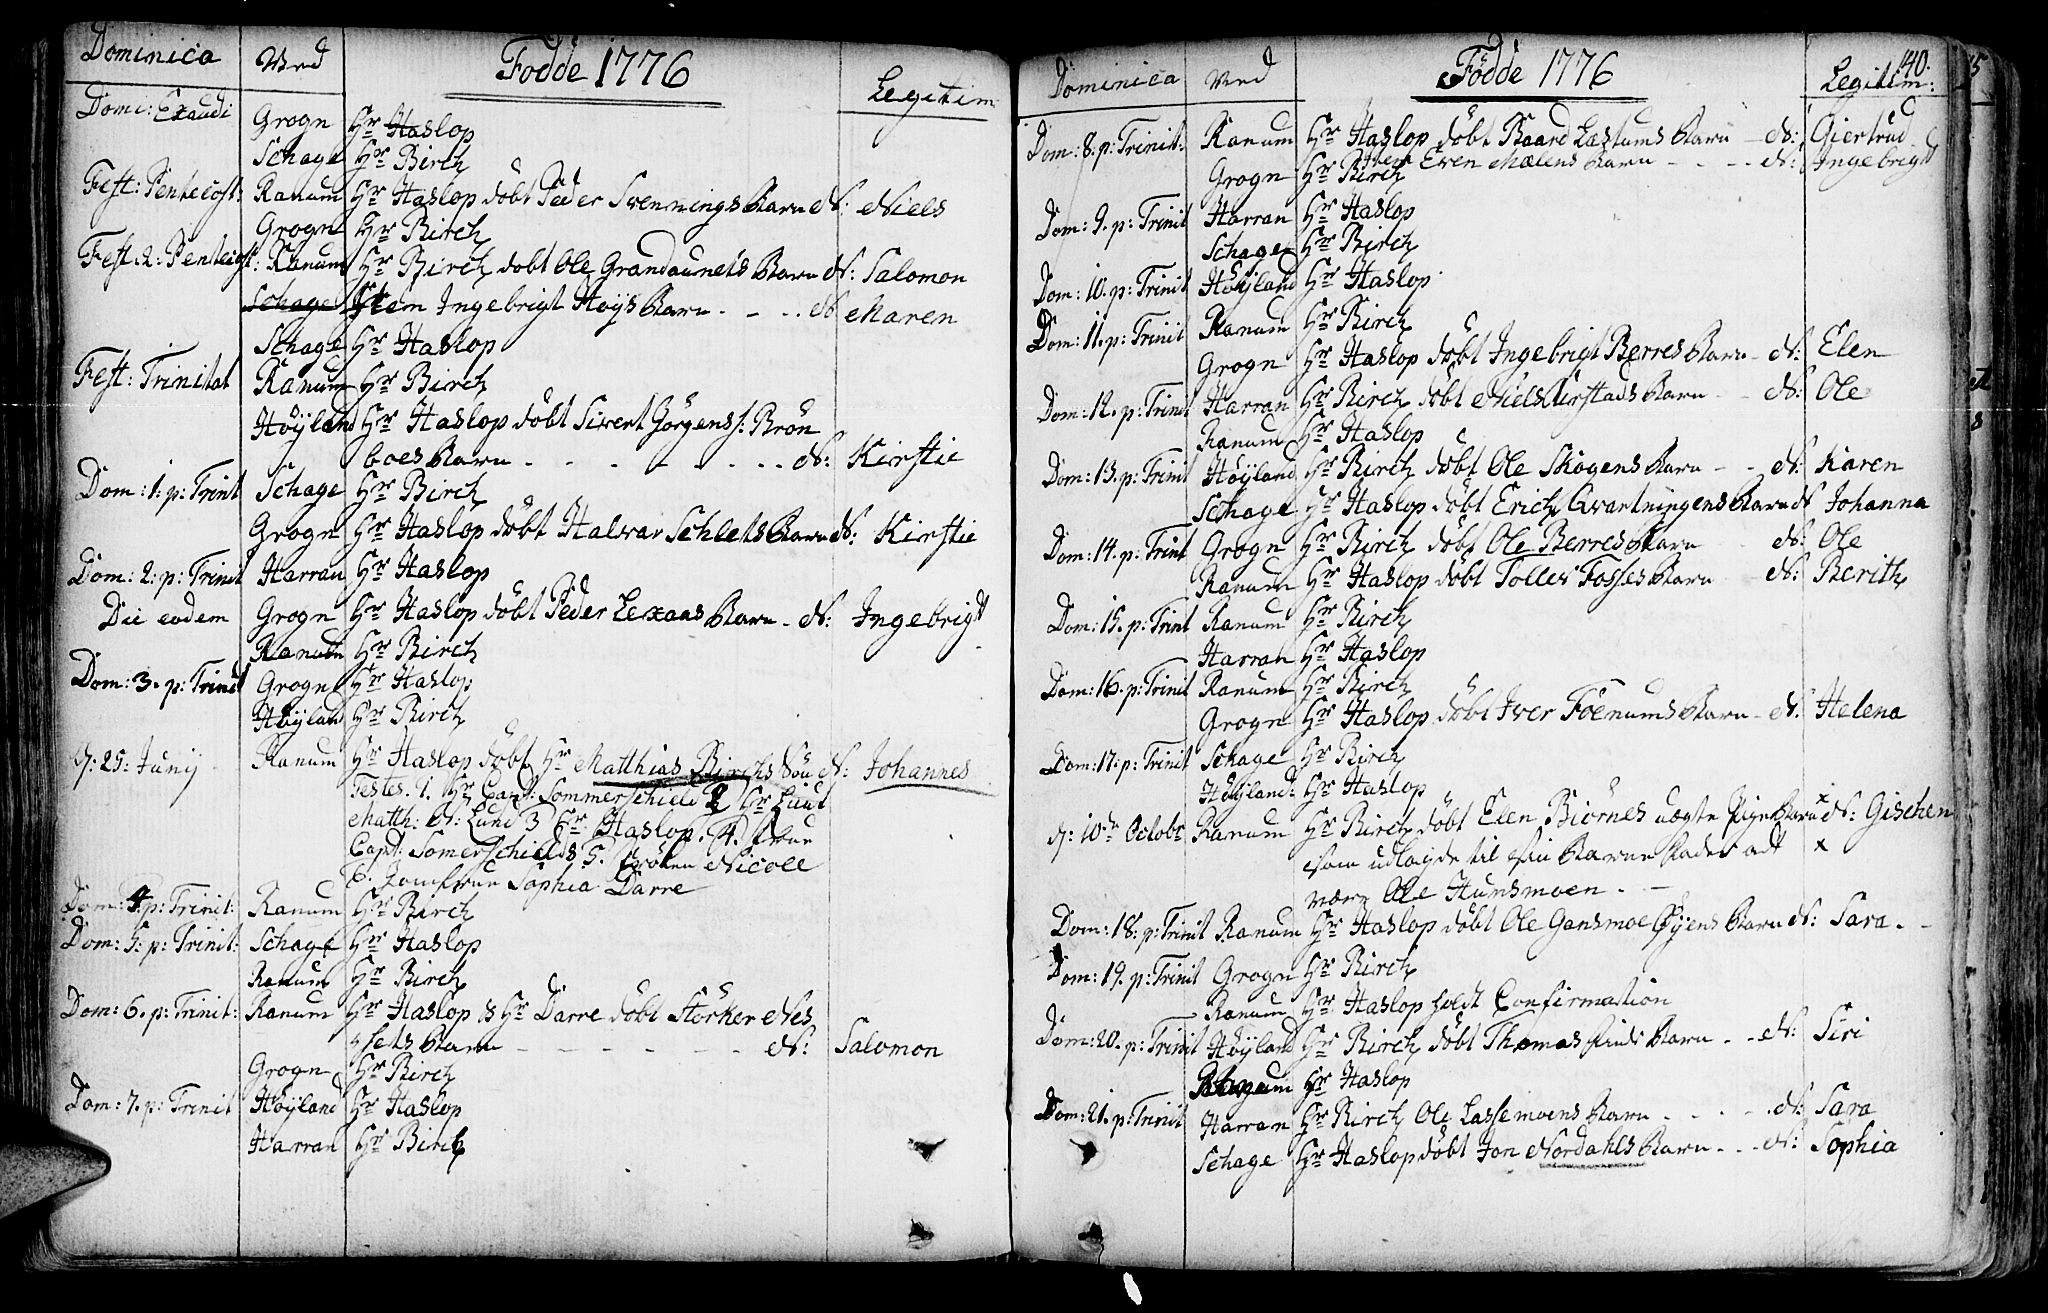 Dominica Ved Födde 1776 Legitim:
Dom: Exaudi Grogn Hr Haslop
Schage Hr Birch
Fest: Pentecost: Ranum Hr Haslop döbt Peder Svennings Barn N: Niels
Grogn Hr Birch
Fest: 2: Pentecost: Ranum Hr Birch döbt Ole Grandaunets Barn N: Salomon
Schage Item Ingebrigt Höys Barn - - - N Maren
Schage Hr Haslop
Fest: Trinitat Ranum Hr Birch
Höyland Hr Haslop döbt Sivert Görgens: Brön
boes Barn - - - - - - - N: Kirstie
Dom: 1: p: Trinit Schage Hr Birch
Grogn Hr Haslop döbt Halvar Sehlets Barn N: Kirstie
Dom: 2: p: Trinit Harran Hr Haslop
Die eodem Grogn Hr Haslop döbt Peder Lexaas Barn - N: Ingebrigt
Ranum Hr Birch
Dom: 3. p: Trinit Grogn Hr Haslop
Höyland Hr Birch
d: 25: Junij Ranum Hr Haslop döbt Hr Matthias Birchs Sön N: Johannes
Testes. 1. Hr Capt: Sommerschield 2 Hr Lieut
Matth: N: Lund 3 Hr Haslop. 4. Frue
Capt: Somerschields 5. Fröken Nicole
6. Jomfrue Sophia Darre
Dom: 4. p: Trinit: Ranum Hr Birch
Dom: 5. p: Trinit: Schage Hr Haslop
Ranum Hr Birch
Dom: 6. p: Trinit: Ranum Hr Haslop & Hr Darre döbt Störker Nes
sets Barn - - - - - - N: Salomon
Grogn Hr Birch
Dom: 7. p: Trinit Höyland Hr Haslop
Harran Hr Birch
140.
Dominica Ved Födde 1776 Legitim:
Dom: 8. p: Trinit: Ranum Hr Haslop döbt Baard Læstums Barn - N: Giertrud
Item Even Mælens Barn - - - N: Ingebrigt
Grogn Hr Birch
Dom: 9. p: Trinit Harran Hr Haslop
Schage Hr Birch
Dom: 10. p: Trinit Höyland Hr Haslop
Dom: 11. p: Trinit Ranum Hr Birch
Grogn Hr Haslop döbt Ingebrigt Berres Barn - N: Elen
Dom: 12. p: Trinit Harran Hr Birch döbt Niels Urstads Barn - - N: Ole
Ranum Hr Haslop
Dom: 13. p: Trinit Höyland Hr Birch döbt Ole Skogens Barn - - N: Karen
Schage Hr Haslop döbt Erich Qvartningens Barn N Johanna
Dom: 14. p: Trinit Grogn Hr Birch döbt Ole Berres Barn - N: Ole
Ranum Hr Haslop döbt Tollev Fosses Barn - N: Berith
Dom: 15. p: Trinit Ranum Hr Birch
Harran Hr Haslop
Dom: 16. p: Trinit Ranum Hr Birch
Grogn Hr Haslop döbt Iver Föenums Barn - N: Helena
Dom: 17. p: Trinit Schage Hr Birch
Höyland: Hr Haslop
d: 10de Octobr Ranum Hr Birch döbt Elen Biörnes uægte Pige Barn x N: Gischen
som udlagde til sin Barne Fader at x
være Ole Hunsmoen. -
Dom: 18. p: Trinit Ranum Hr Haslop döbt Ole Gansmoe Öyens Barn N: Sara. -
Dom: 19. p: Trinit Grogn Hr Birch
Ranum Hr Haslop holdt Confirmation
Dom: 20. p: Trinit Höyland Hr Birch döbt Thomas Barn - - N: Siri
Ranum Hr Haslop
Dom: 21. p: Trinit Harran Hr Birch Ole Lassemoens Barn - - - - N: Sara
Schage Hr Haslop döbt Jon Nordahls Barn - - - N: Sophia